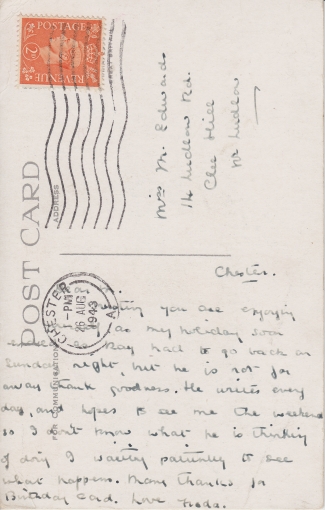 POSTAGE
2D
REVENUE
POST CARD
ADDRESS
FOR COMMUNICATION
CHESTER
PM
26 AUG
1943
Miss M. Edwards
14 Ludlow Rd.
Clee Hill
Nr Ludlow
Chester.
you are enjoying
as my holiday soon
Ray had to go back on
Sunday night, but he is not far
away thank goodness. He writes every
day, and hopes to see me the weekend
so I don't know what he is thinking
of doing I waiting patiently to see
what happens. Many thanks for
Birthday Card. Love Freda.